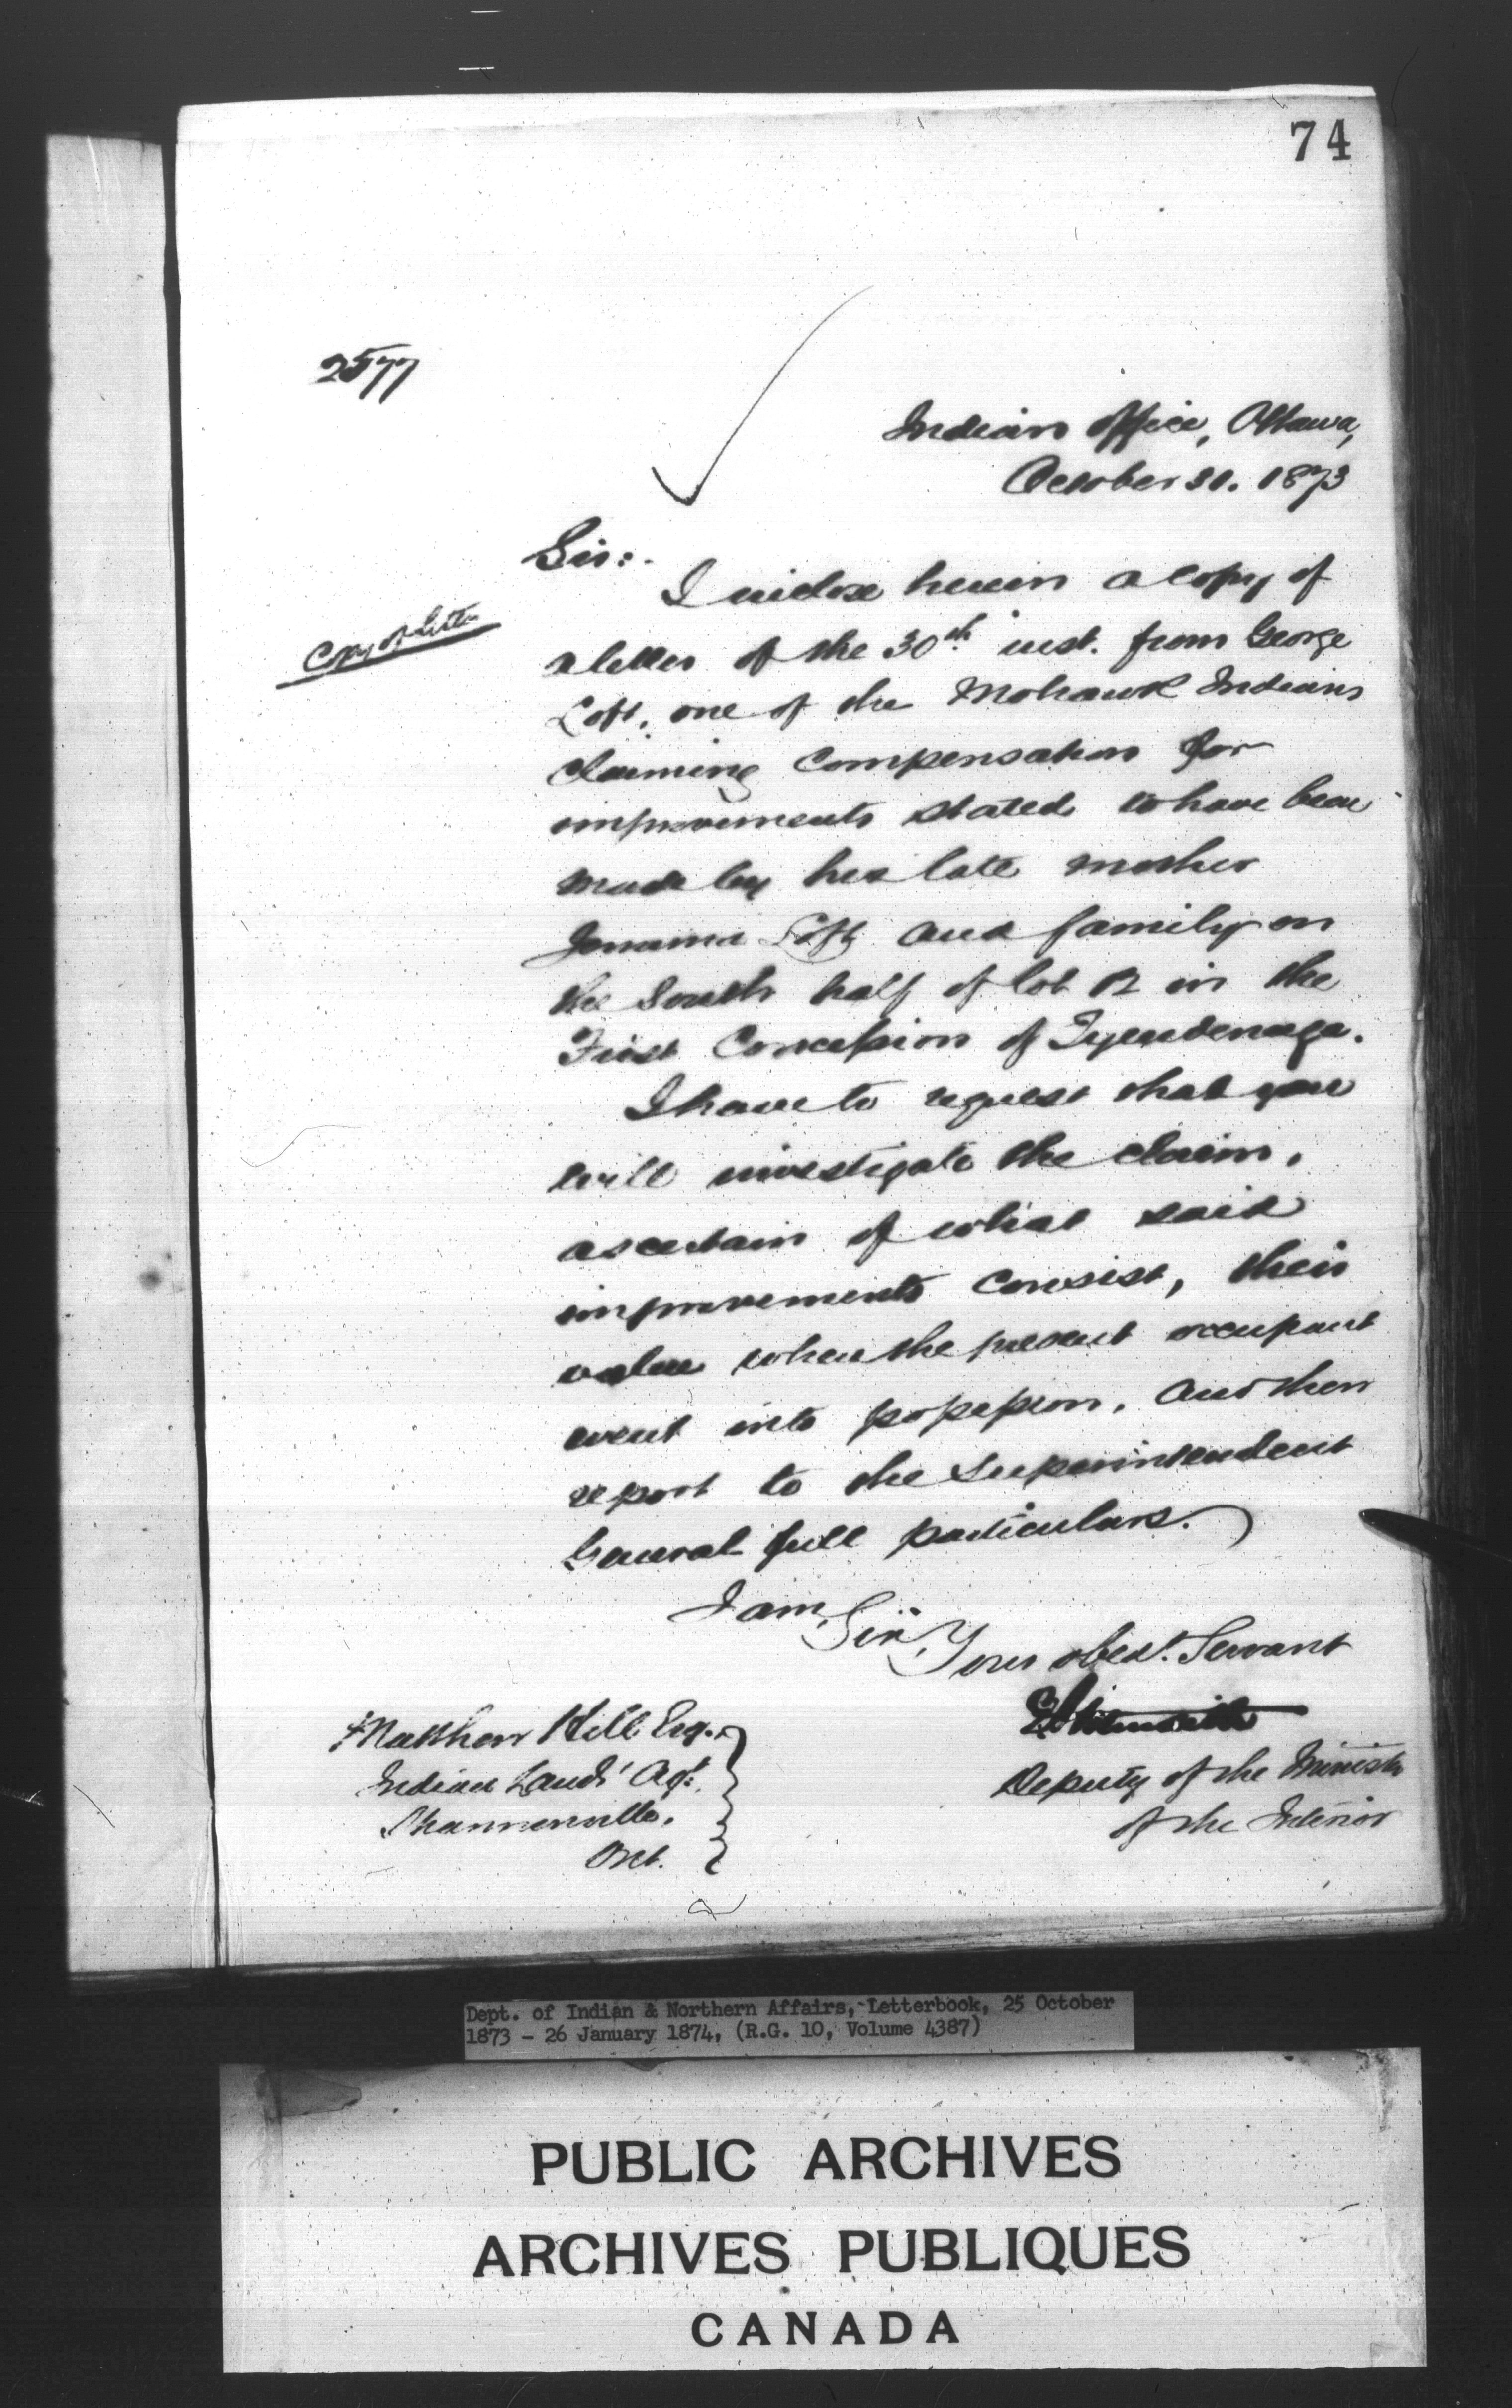 74
2577
Indian Office, Ottawa,
October 31. 1873
Sir:.
I enclose herein a copy of
Copy of Letter
a letter of the 30th inst. from George
Loft, one of the Mohawk Indians
claiming compensation for
improvements stated to have been
made by his late mother
Jemima Loft and family on
the South half of lot in the
First Concession of Tyendenaga.
I have to request that you
will investigate the claim,
ascertain of what said
improvements consist, their
value when the present occupant
went into possession, and then
report to the Superintendent
General full particulars.
I am, Sir,
Your obedt. Servant
Deputy of the Minister
of the Interior
Matthew Hill Esq.
Indian Lands Agt.
Shannonville.
Ont.
Dept. of Indian & Northern Affairs, Letterbook, 25 October
1873 - 26 January 1874, (R.G. 10, Volume 4387)
PUBLIC ARCHIVES
ARCHIVES PUBLIQUES
CANADA